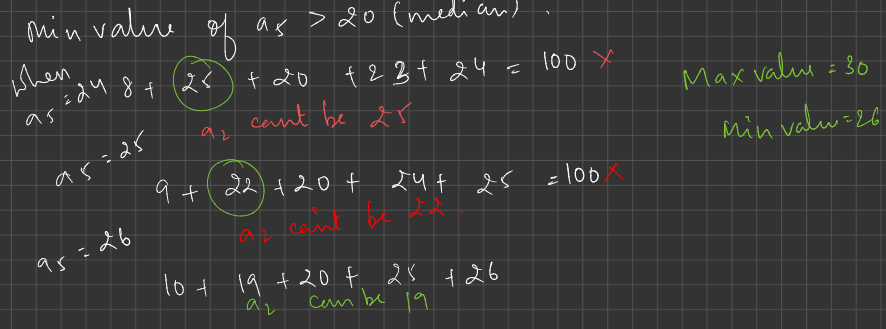 Min value of a5 > 20 (median).
When a5 = 24 8 + 25 + 20 + 23 + 24 = 100 X
a2 cant be 25
a5 = 25
9 + 22 + 20 + 24 + 25 = 100 X
a2 can't be 22.
a5 = 26
10 + 19 + 20 + 25 + 26
a2 can be 19
Max value = 30
Min value = 26